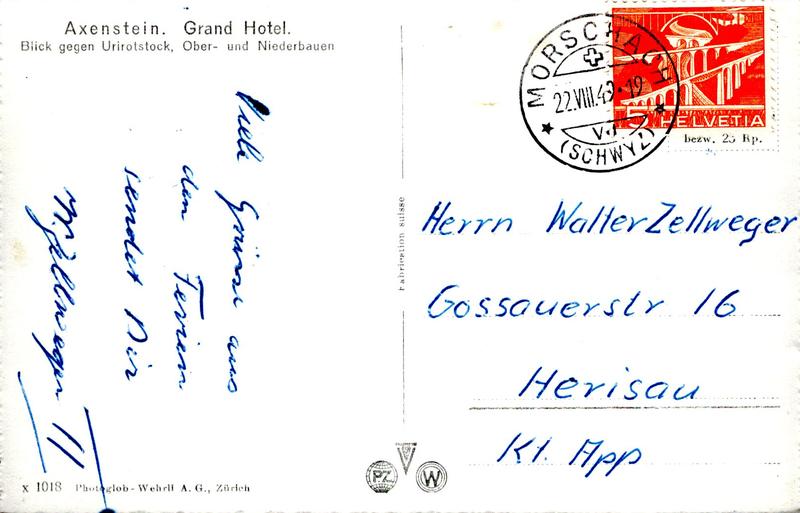 Axenstein. Grand Hotel.
Blick gegen Urirotstock, Ober- und Niederbauen
Viele Grüsse aus
den Ferien
sendet Dir
MORSCHACH
22.VIII.49-19
(SCHWYZ)
5 HELVETIA
bezw. 25 Rp.
Fabrication Suisse
Herrn Walter Zellweger
Gossauerstr 16
Herisau
Kt. App
PZ W
X 1018 Photoglob-Wehrli A. G., Zürich